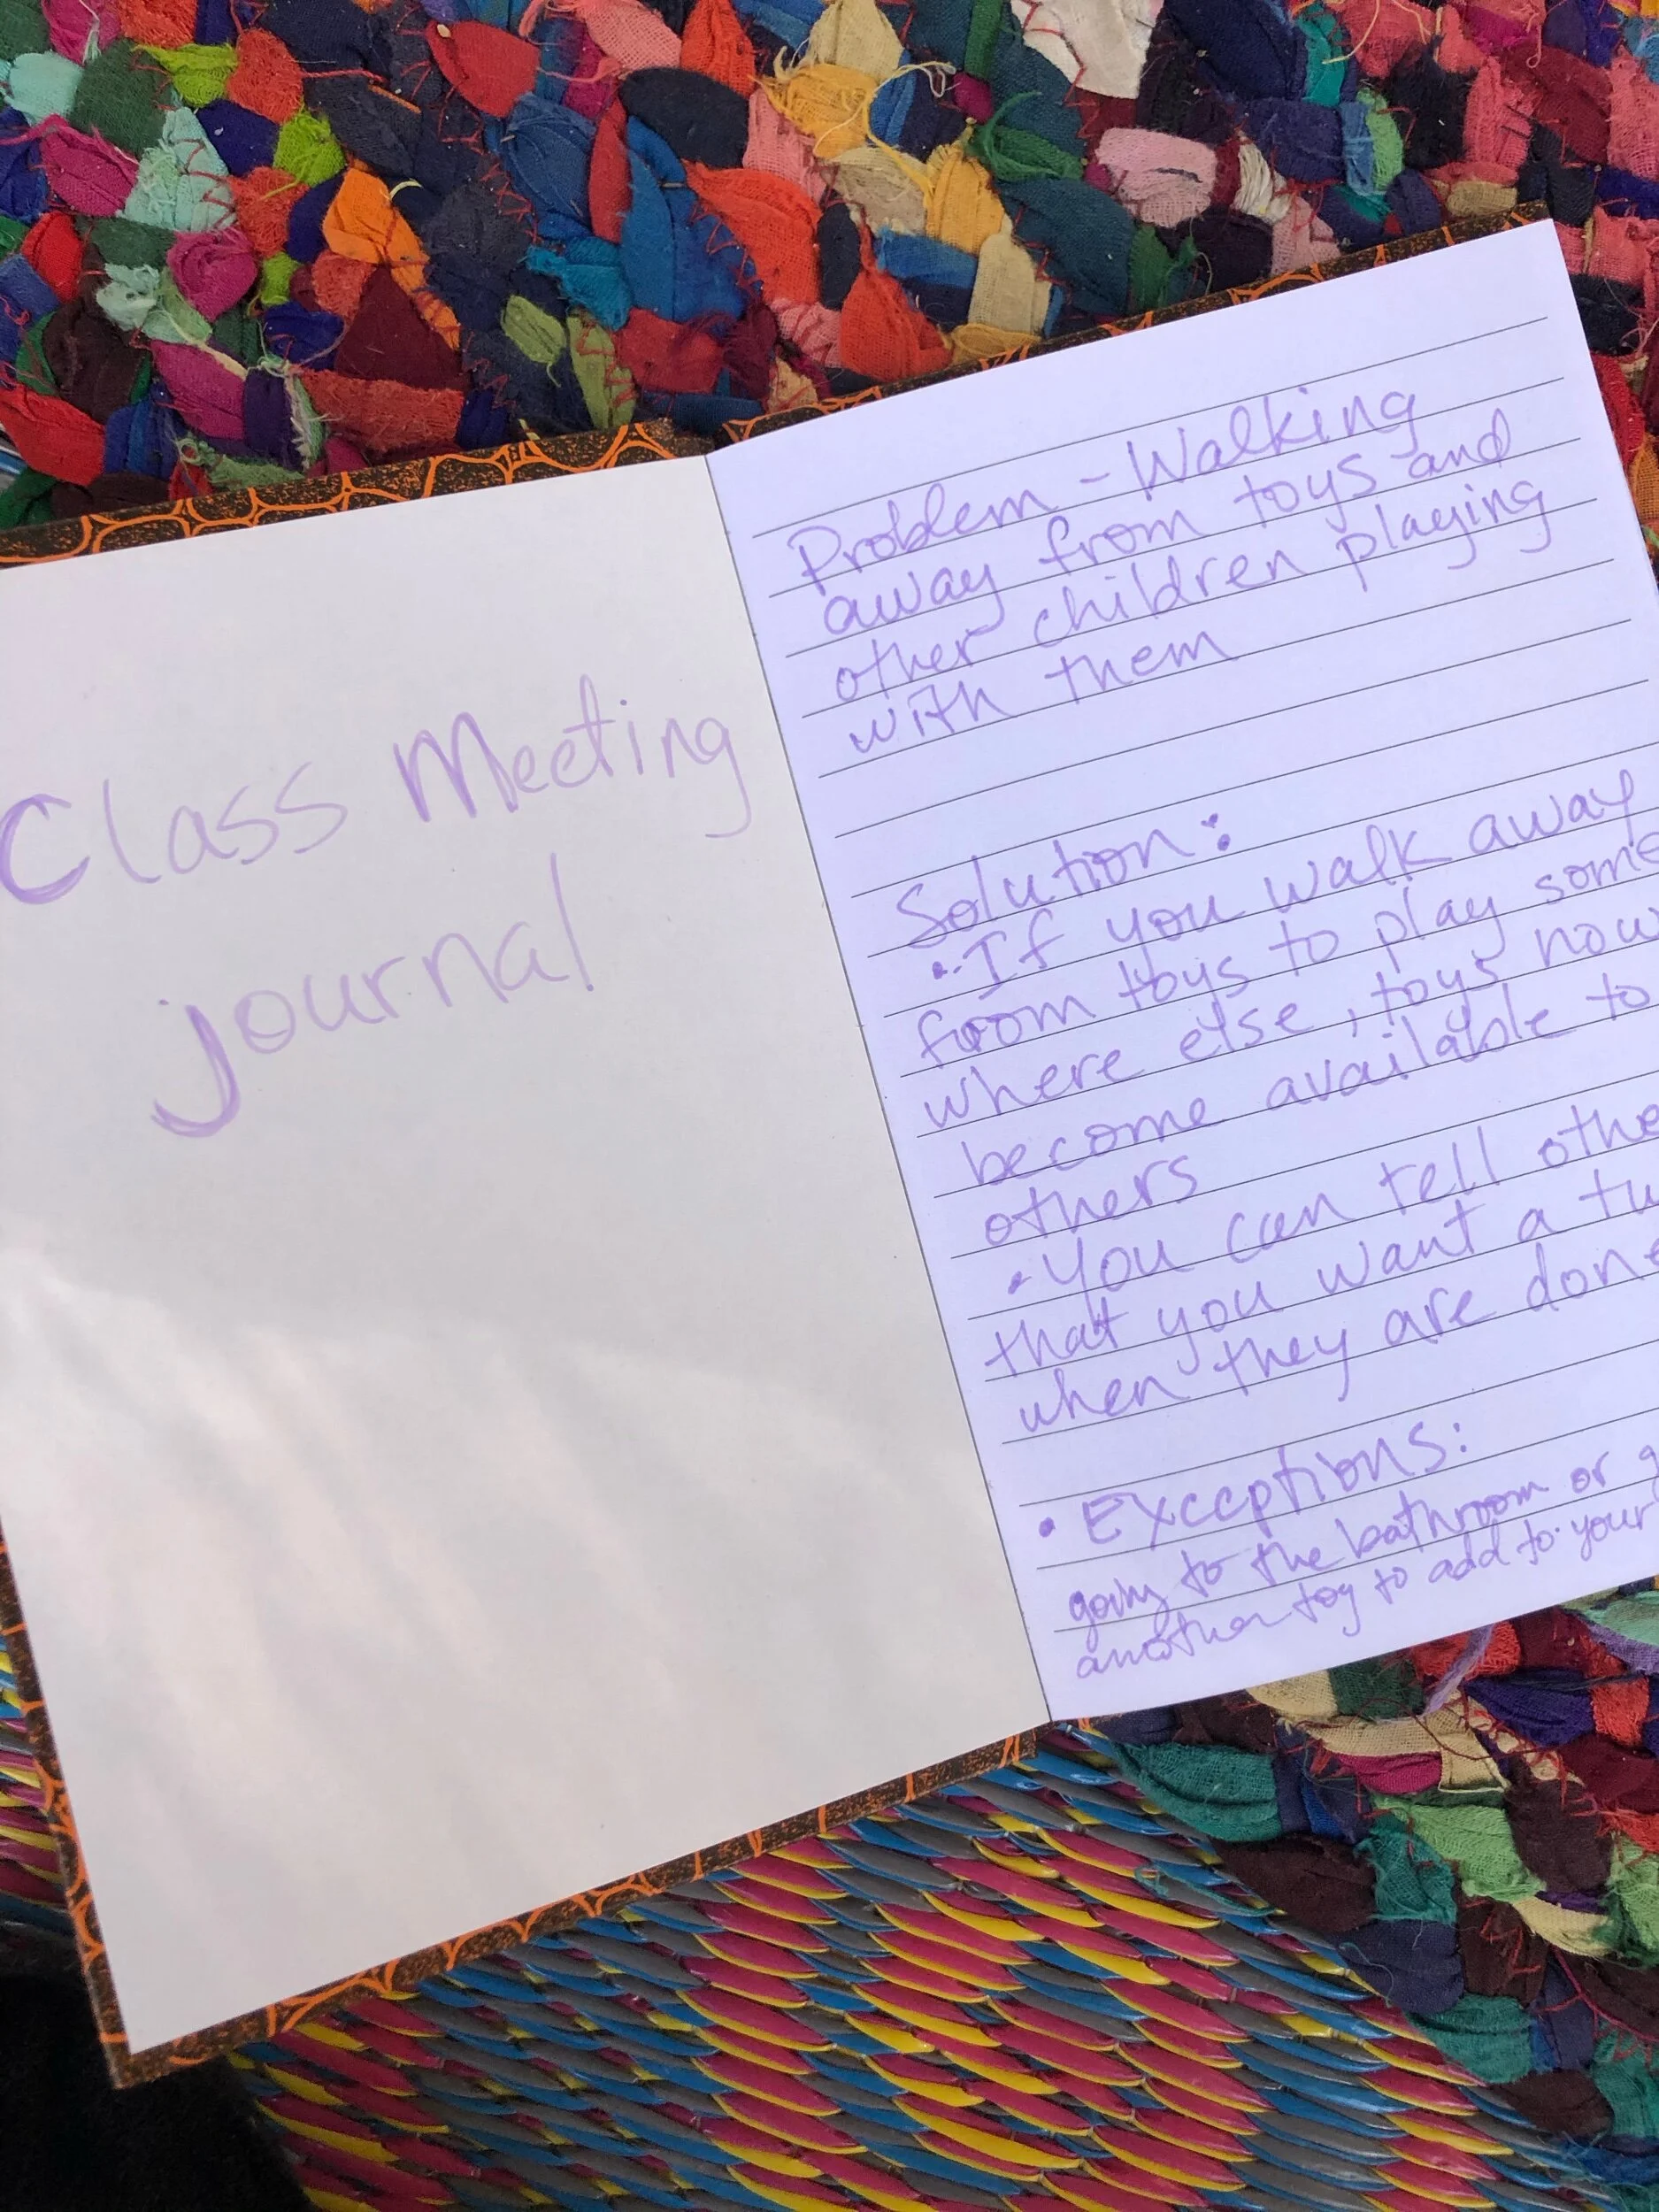 Class Meeting
journal
Problem - Walking
away from toys and
other children playing
with them
Solution:
• If you walk away
from toys to play some
where else, toys now
become available to
others
• You can tell othe
that you want a tu
when they are done
• Exceptions:
going to the bathroom or g
another toy to add to your